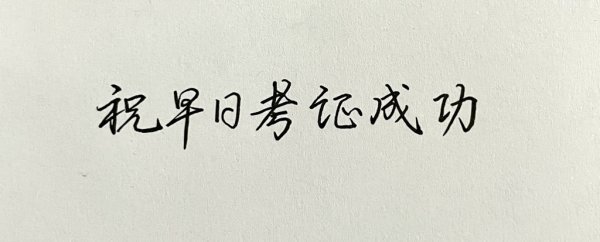 祝早日考证成功